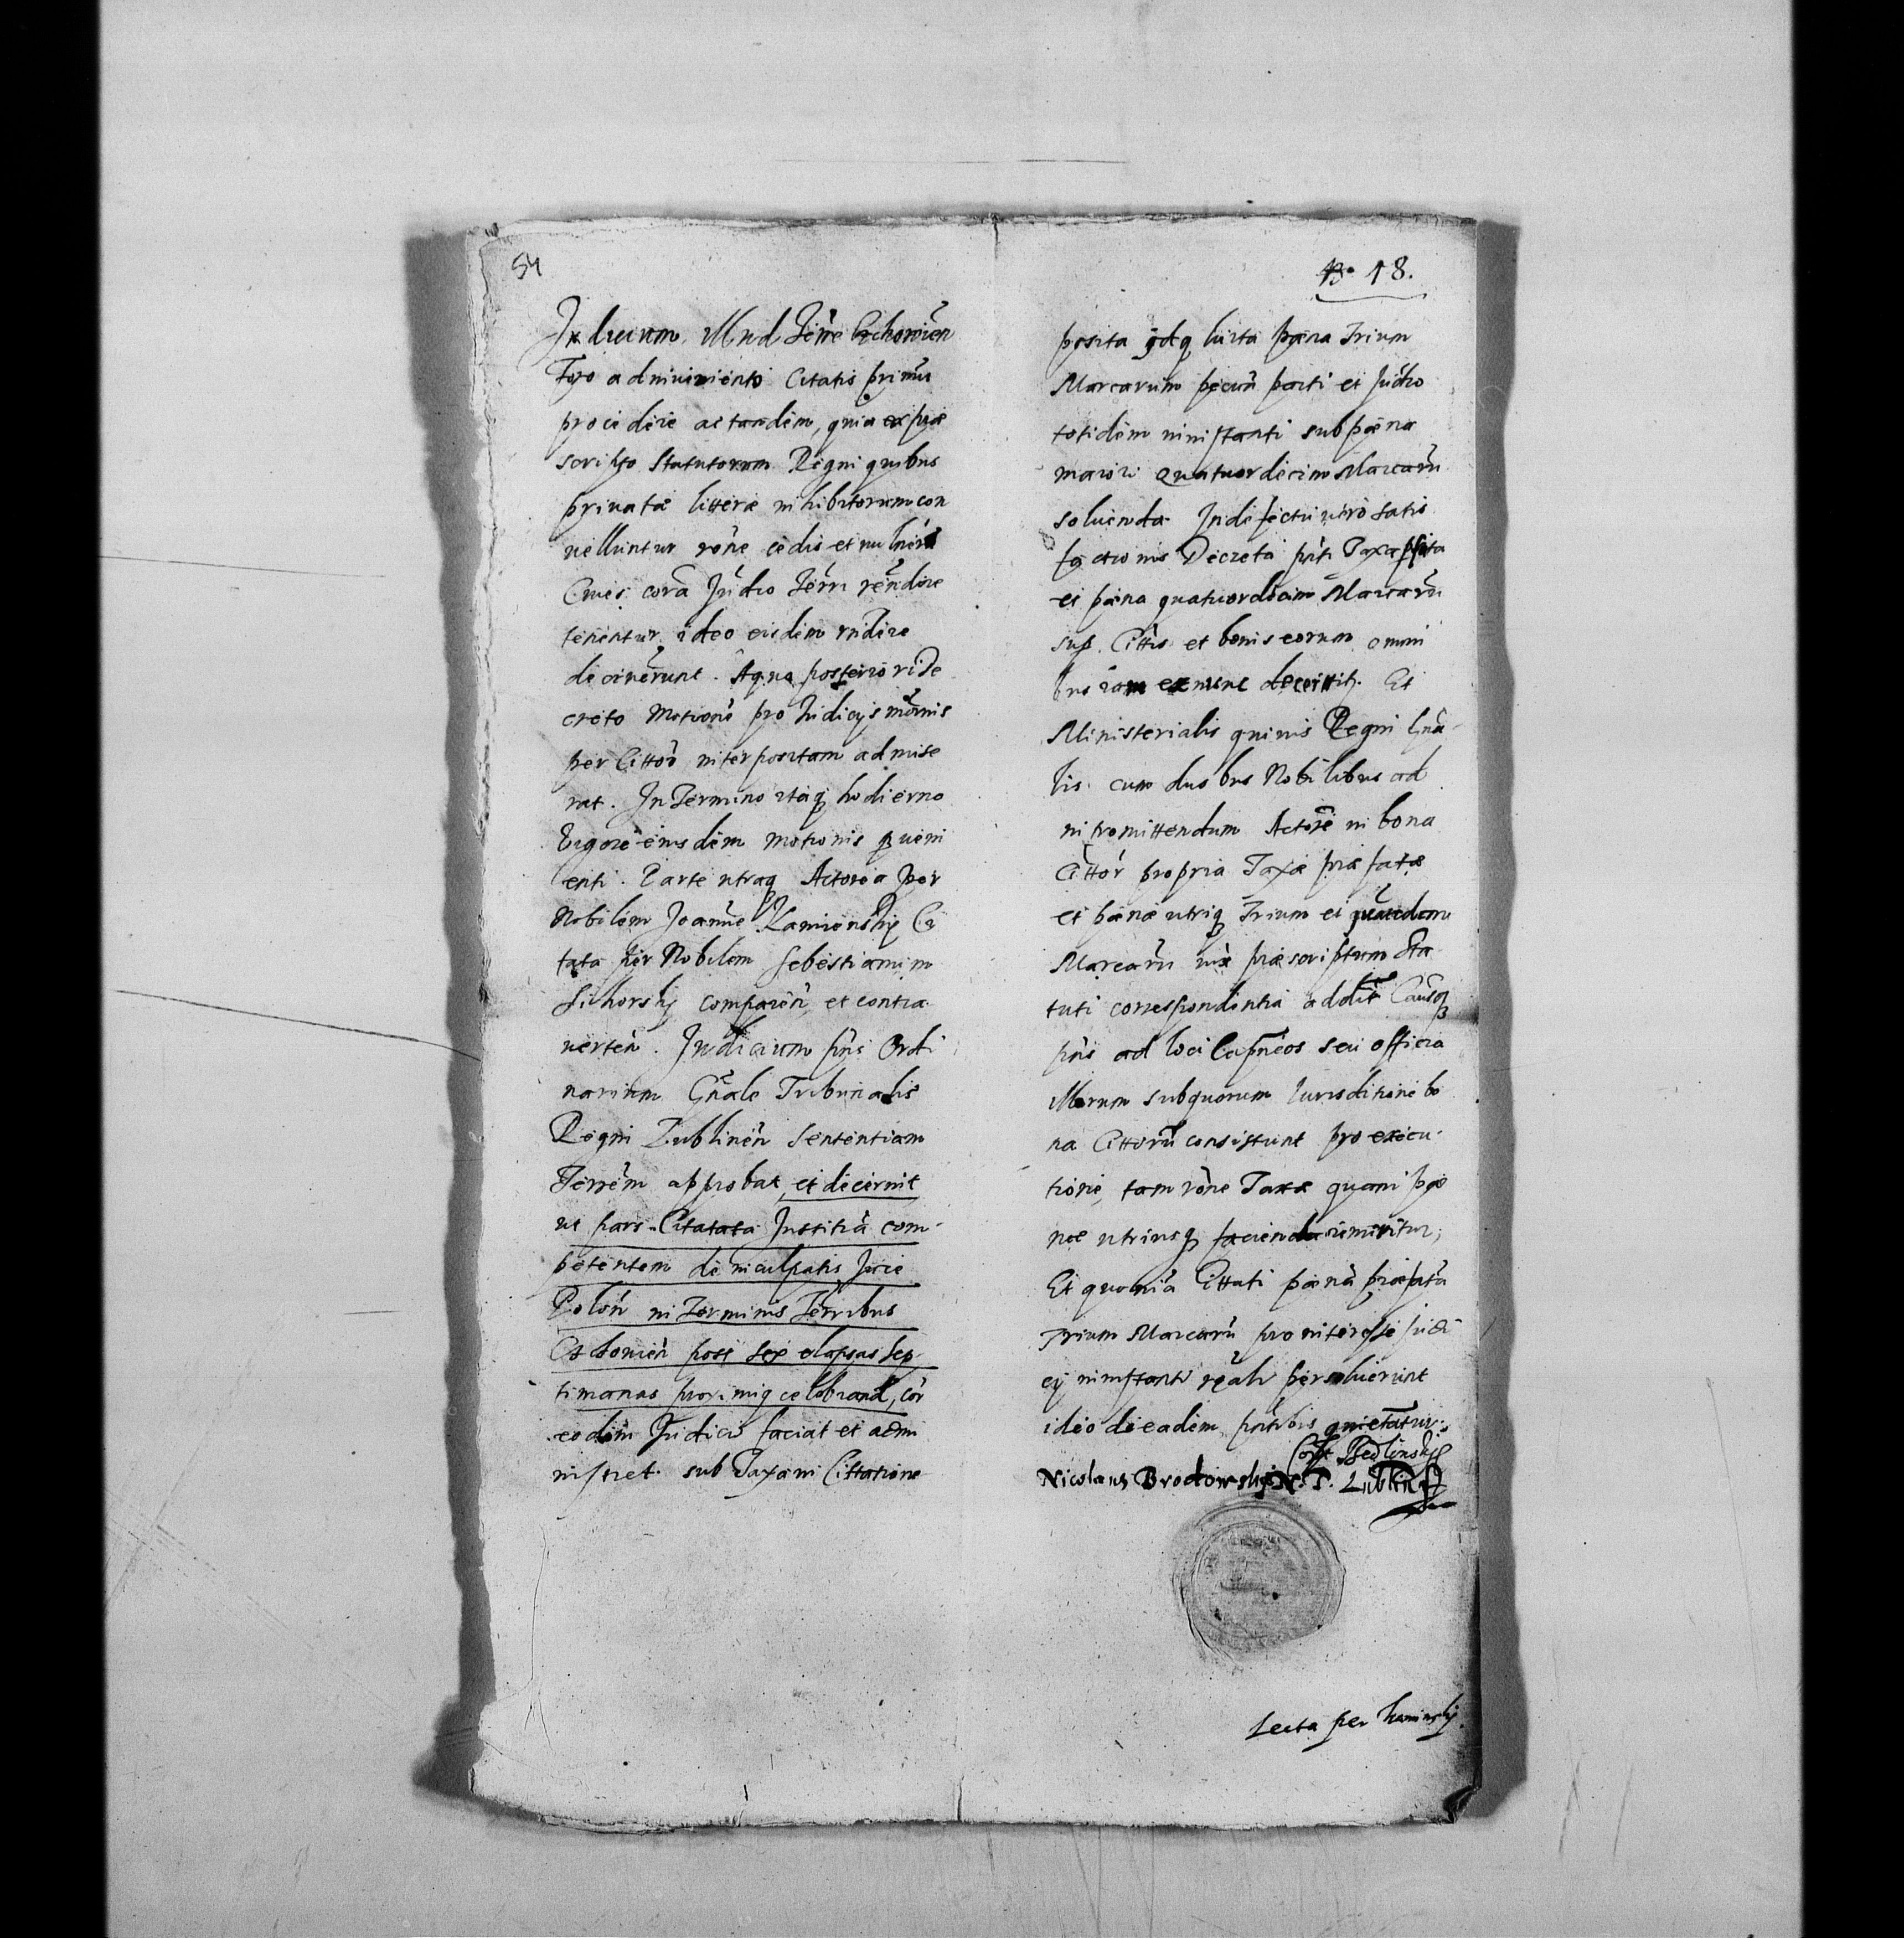 54
Judicium illud Terrñe Czchovien̄
Foro adinvenienti Citatis primũ
procedere ac tandem, quia ex præ
scripto Statutorum Regni quibus
privatæ litteræ inhibitorum con
velluntur rõne cedis et vulneris
Cives corã Judõ Terrĩ rẽndere
tenentur, ideo eisdem rñdere
decreverunt. Atque posteriori De
creto Motionẽ pro Judicijs mõrnis
per Cittõs interpositam admise
rat. In Termino itaq hodierno
Vigore eiusdem motionis pveni
enti. Parte utraq Actorea per
Nobilem Joannẽ Kamienskij Ci
tata per Nobilem Sebestianum
Sichorskij comparen̄, et contra
verten̄. Judicium pñs Ordi
narium Gñale Tribunalis
Regni Lublinen̄ Sententiam
Terrẽm approbat, et decernit
ut pars Citatata Justitiã com
petentem de inculpatis Jure
Polon̄ in Terminis Terrĩbus
post sex elapsas sep
timanas proximiq celebrand, cor
eodem Judicio faciat et admi
nistret sub Taxa in Cittatione
18.
posita idq luita pæna Trium
Marcarum pecun̄ parti et Judõ
totidem ministranti sub pæna
maiori quatuordecim Marcarũ
soluenda. In defectu vero satis
factionis Decreta pñti Taxa pfata
et pæna quatuordecim Marcarũ
sup. Cittis et bonis eorum omni
bus iam ex nunc decernit. Et
Ministerialis quivis Regni Gñã
lis cum duobus Nobilibus ad
intromittendum Actorẽ in bona
Cittõr propria Taxæ præfatæ
et pænæ utriq Trium et quatuordecim
Marcarũ iux præscriptum Sta
tuti correspondentia additr Causaq
pñs ad loci Capñeos seu officia
illorum sub quorum Jurisditione bo
na Cittorũ consistunt pro execu
tione, tam rõne Taxæ quam pæ
næ utriusq facienda remittitur,
Et quoniã Cittati pænã præfatã
Trium Marcarũ pro interesse Judi
cij ministranti realr persoluerunt
ideo de eadem pñtibus quietatur
Corr. Bedlinskij
Nicolaus Brodowskij N. T. Lublin
Lecta per Kaminskij